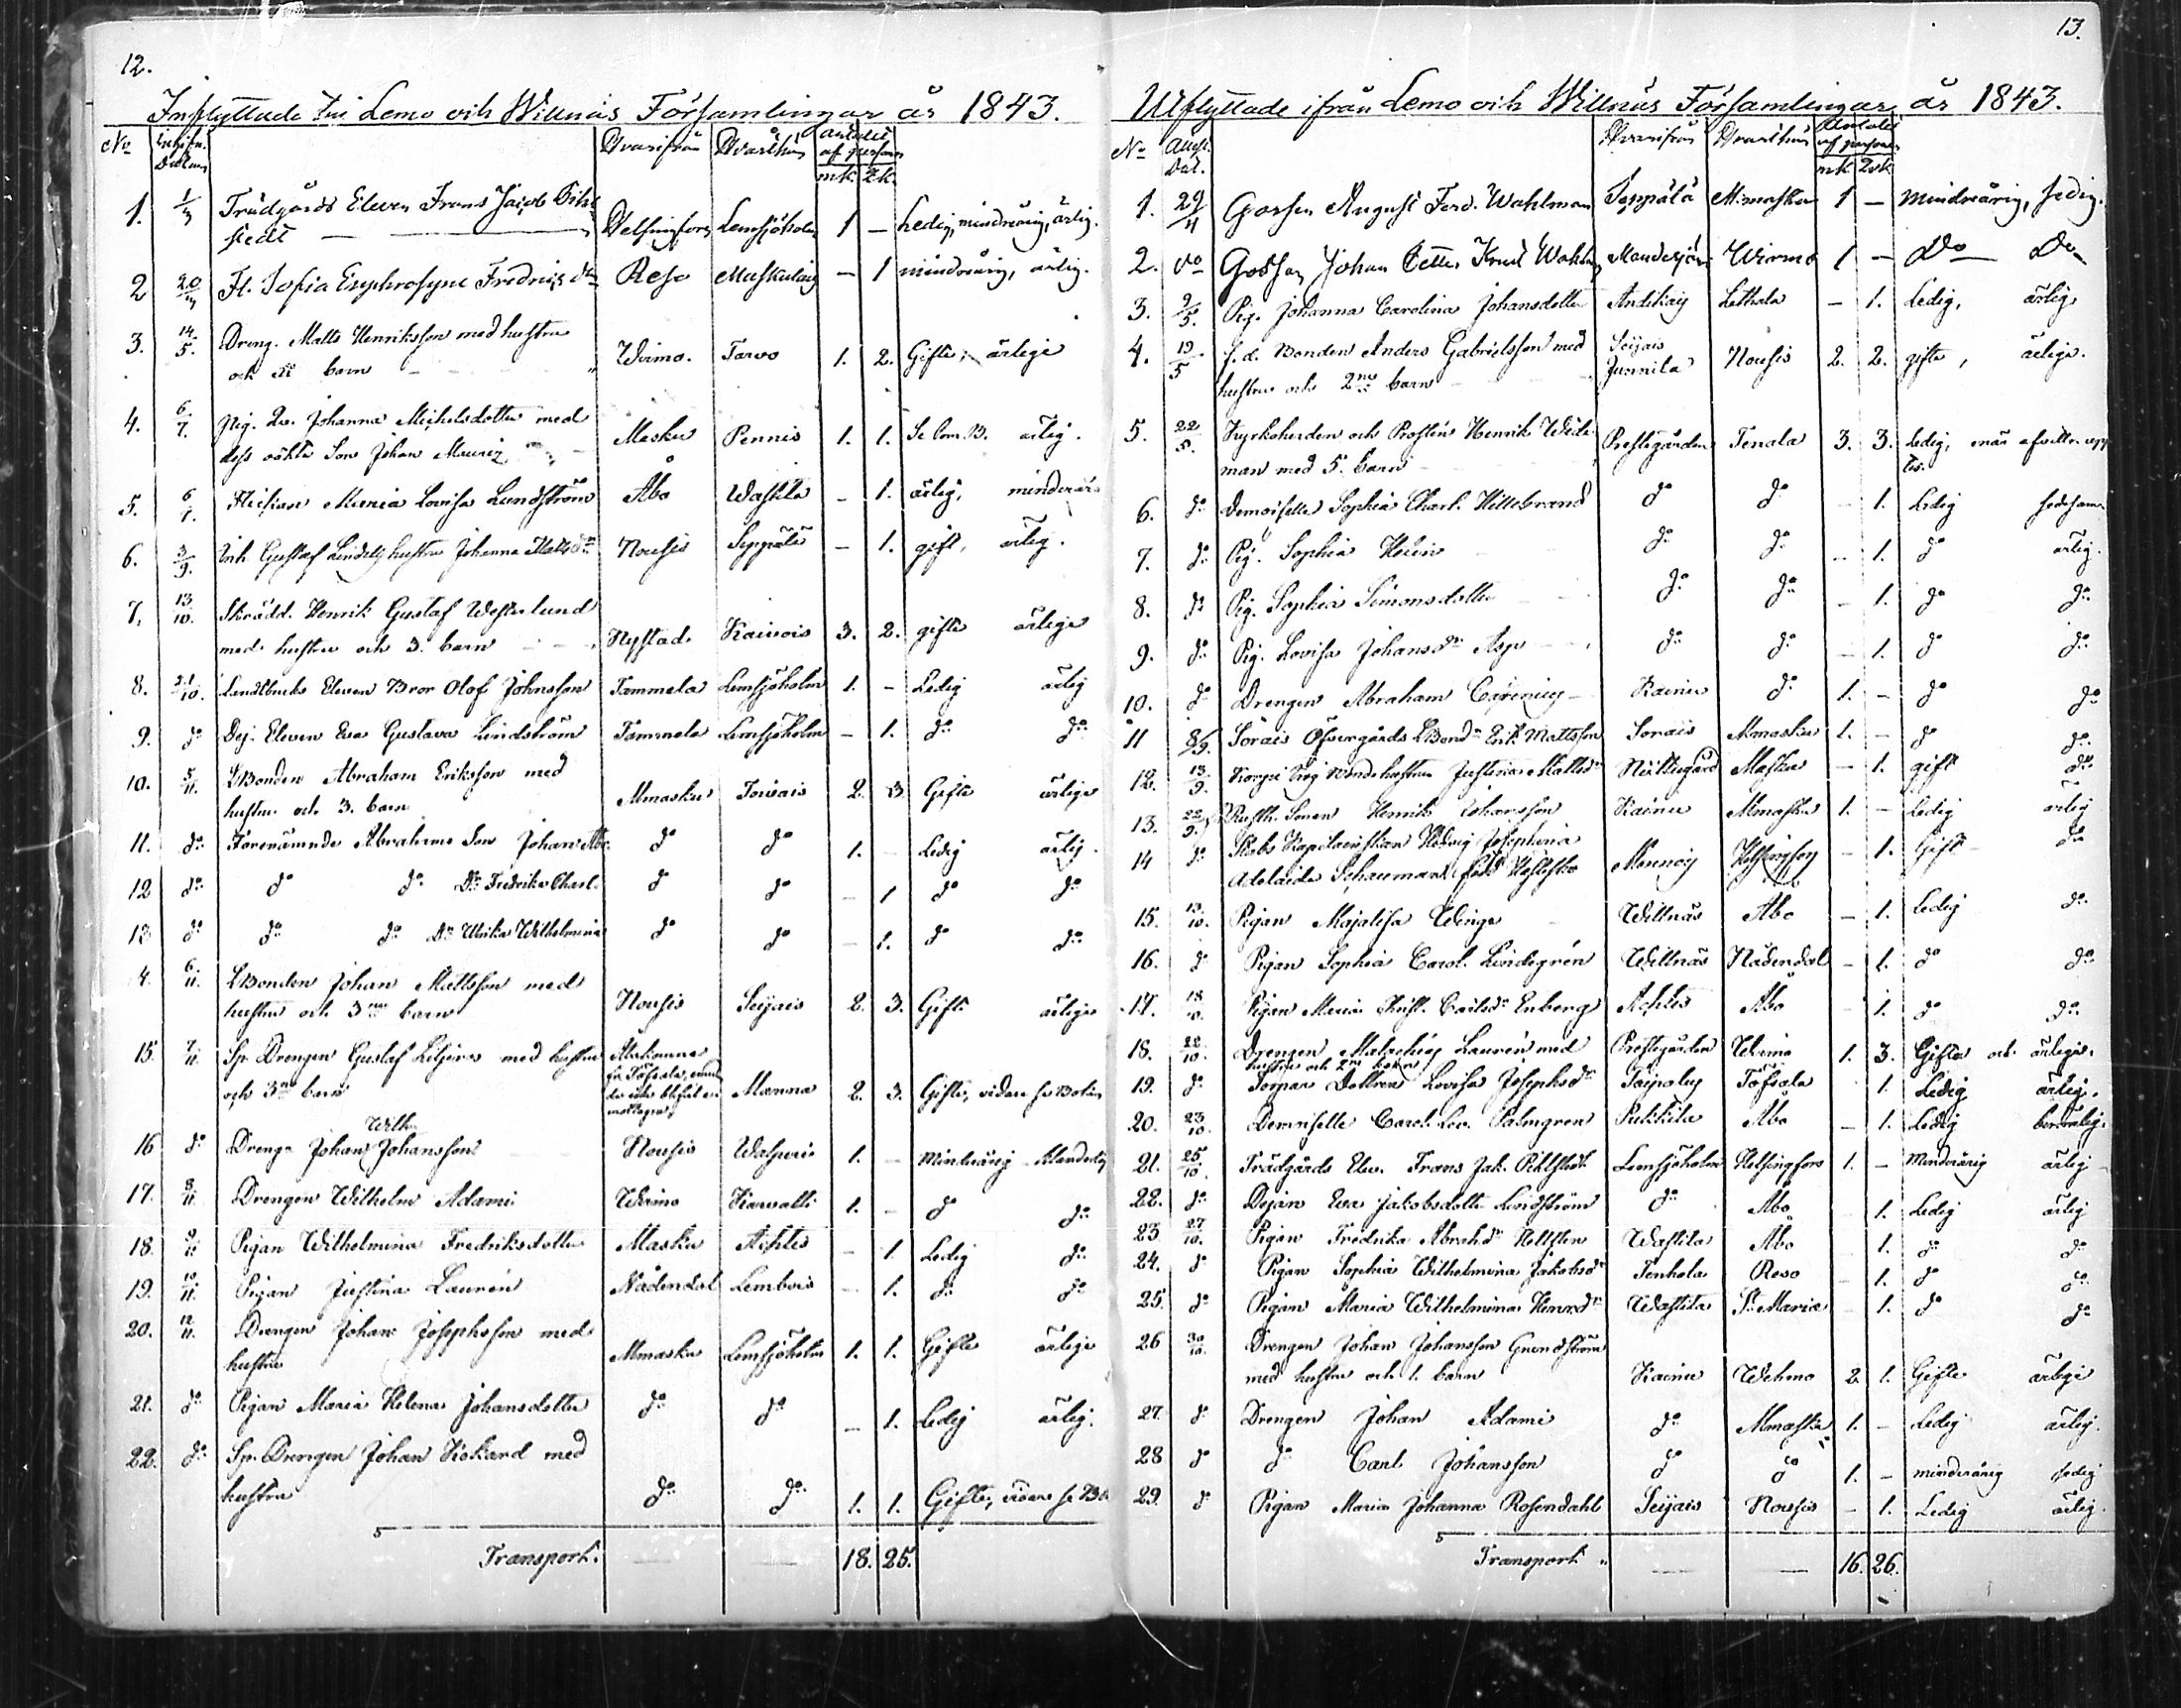 12.
Inflyttade till Lemo och Willnäs Församlingar år 1843.
No Datum Hvarifrån Hvarthän antalet af person mk. qk.
1. 1/3 Trädgårds Eleven Frans Jacob
stedt Helsingfors Lemsjöholm 1 — Ledig, mindreårig, ärlig.
2 20 Fl. Sofia Euphrosyne Reso — 1 mindreårig, ärlig.
3. 14/5. Dreng. Matts Henriksson med hustru
och barn Wirmo. Tarvo 1. 2. Gifte, ärlige
4. 6/7. Pig. Johanna Michelsdotter med
dess oäkta Son Johan Masku Pennis 1. 1. ärlig.
5. 6/7. Flickan Maria Lovisa Lundström Åbo Wastila – 1. ärlig, minderår
6. 3/9. Inh. Gustaf hustru Johanna Nousis Seppälä – 1. gift, ärlig.
7. 13/10. Skrädd. Henrik Gustaf Westerlund
med hustru och 3. barn Nystad Kaivois 3. 2. gifte ärlige
8. 21/10. Landtbruks Eleven Bror Olof Johnsson Tammela Lemsjöholm 1. – Ledig ärlig
9. do Dej. Eleven Eva Gustava Lindström Tammela Lemsjöholm – 1. do do
10. 5/11. LBonden Abraham Eriksson med
hustru och 3. barn Mmasku Toivais 2. 3 Gifte ärlige
11. do Förenämnde Abrahams Son Johan do do 1. – Ledig ärlig.
12 do do do Dr Fredrika Charl. do do – 1 do do
13 do do do Dr Ulrika Wilhelmina do do – 1. do do
4. 6/11. LBonden Johan Mattsson med
hustru och 3ne barn Nousis Seijais 2. 3. Gifte ärlige
15. 7/11. Sp. Drengen Gustaf Liljeros med hustru
och 3ne barn Manna 2. 3. Gifte, vidare se
Wilh.
16 do Dreng. Johan Johansson Nousis Walpuri 1. – Minderårig
17. 8/11. Drengen Wilhelm Adami Wirmo Karvatti 1. – do do
18. 9/11 Pigan Wilhelmina Fredriksdotter Masku Achtis – 1. Ledig do
19. 10/11. Pigan Justina Laurén Nådendal Lembois – 1. do do
20. 12/11. Drengen Johan Josephsson med
hustru Mmasku Lemsjöholm 1. 1. Gifte ärlige
21. do Pigan Maria Helena Johansdotter do do – 1. Ledig ärlig.
22. do Sp. Drengen Johan Kiskard med
hustru do do 1. 1. Gifte, vidare se
Transport. — — 18. 25.
13.
Utflyttade ifrån Lemo och Willnäs Församlingar år 1843.
No Dat. Hvarifrån Hvarthän Antalet af personer mk. qvk
1. 29/4 Gossen August Ferd. Wahlman Seppälä Mmasku 1 — mindreårig, sedig.
2. do Gossen Johan Petter Knut Wahlm Wirmo 1 – Do Do
3. 9/5. Pig. Johanna Carolina Johansdotter Lethala – 1. Ledig, ärlig
4. 19/5 f.d. Bonden Anders Gabrielsson med
hustru och 2ne barn Seijais Junnila Nousis 2. 2. gifte, ärlige.
5. 22/5. Kyrkoherden och Prosten Henrik
man med 5. barn Prestegården Tenala 3. 3. ledig,
6. do Demoiselle Sophia Charl. Hillebrand do do – 1. Ledig sedesam
7. do Pig. Sophia do do – 1. do ärlig.
8. do Pig. Sophia Simonsdotter do do – 1. do do
9. do Pig. Lovisa Johansdr Asp do do – 1. do do
10. do Drengen Abraham Kainu do 1. – do do
11 8/9. Sorais Öfvergårds LBondn Erik Mattsson Sorais Mmasku 1. – do do
12. 13/9. hustru Justina Mattsdr Masku – 1. gift do
13. 22/9. Rusth. Sonen Henrik Johansson Kainu Mmasku 1. – Ledig ärlig
14 do Stabs Kapitainskan Hedvig Josephina
Adelaide Schauman född Helsingfors – 1. Gift do
15. 13/10. Pigan Majalisa Winge Willnäs Åbo – 1. Ledig do
16. do Pigan Sophia Carol. Lindegrén Willnäs Nådendal – 1. do do
17. 18/10. Pigan Maria Christ. Carlsdr Enberg Achtis Åbo – 1. do do
18. 22/10. Drengen Malachias Laurén med
hustru och 2ne barn Prestegården Wirmo 1. 3. Gifta och ärlige.
19. do Dottren Lovisa Josephsdr Taipalus Töfsala 1. Ledig ärlig.
20. 23/10. Demoiselle Carol. Lov. Palmgren Pukkila Åbo – 1. Ledig
21. 25/10. Trädgårds Elev. Frans Jak. Pihlstedt Lemsjöholm Helsingfors 1. – Minderårig ärlig
22. do Dejan Eva Jakobsdotter Lindström do Åbo 1. Ledig ärlig
23 27/10. Pigan Fredrika Abrahdr Hellsten Wastila Åbo – 1. do do
24. do Pigan Sophia Wilhelmina Jakobsdr Tenhola Reso – 1. do do
25. do Pigan Maria Wilhelmina Henrdr Wastila St Marie – 1. do do
26 30/10. Drengen Johan Johansson Grundström
med hustru och 1. barn Kainu Wehmo 2. 1. Gifte ärlige
27. do Drengen Johan Adami do Mmasku 1. – Ledig ärlig.
28 do do Carl Johansson do do 1. – minderårig sedig
29. do Pigan Maria Johanna Rosendahl Seijais Nousis – 1. Ledig ärlig.
Transport — — 16. 26.